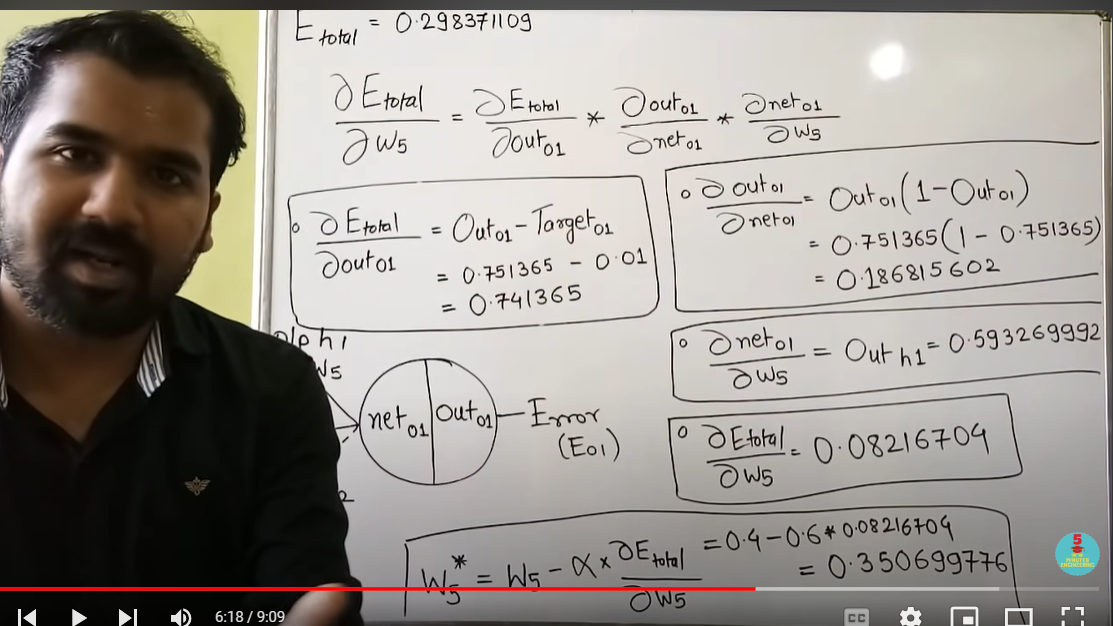 E total = 0.298371109
∂Etotal / ∂W5 = ∂Etotal / ∂out01 * ∂out01 / ∂net01 * ∂net01 / ∂W5
∂Etotal / ∂out01 = Out01 - Target01
= 0.751365 - 0.01
= 0.741365
∂out01 / ∂net01 = Out01(1 - Out01)
= 0.751365(1 - 0.751365)
= 0.186815602
∂net01 / ∂W5 = Out h1 = 0.593269992
∂Etotal / ∂W5 = 0.08216704
h1
W5
net01 | Out01
Error
(E01)
2
W5* = W5 - α × ∂Etotal / ∂W5 = 0.4 - 0.6 * 0.08216704
= 0.350699776
5
MINUTES
ENGINEERING
6:18 / 9:09
CC